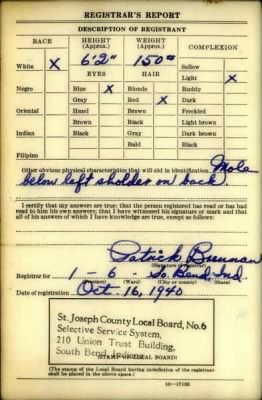 REGISTRAR'S REPORT
DESCRIPTION OF REGISTRANT
RACE HEIGHT (Approx.) WEIGHT (Approx.) COMPLEXION
White X 6'2" 150# Sallow
EYES HAIR Light X
Negro Blue X Blonde Ruddy
Gray Red X Dark
Oriental Hazel Brown Freckled
Brown Black Light brown
Indian Black Gray Dark brown
Bald Black
Filipino
Other obvious physical characteristics that will aid in identification Mole
below left sholder on back.
I certify that my answers are true; that the person registered has read or has had
read to him his own answers; that I have witnessed his signature or mark and that
all of his answers of which I have knowledge are true, except as follows:
Patrick Brennan
(Signature of registrar)
Registrar for 1 - 6 - So. Bend, Ind.
(Ward) (City or county) (State)
Date of registration Oct. 16, 1940
St. Joseph County Local Board, No. 6
Selective Service System,
210 Union Trust Building,
South Bend, Indiana
(STAMP OF LOCAL BOARD)
(The stamp of the Local Board having jurisdiction of the registrant
shall be placed in the above space.)